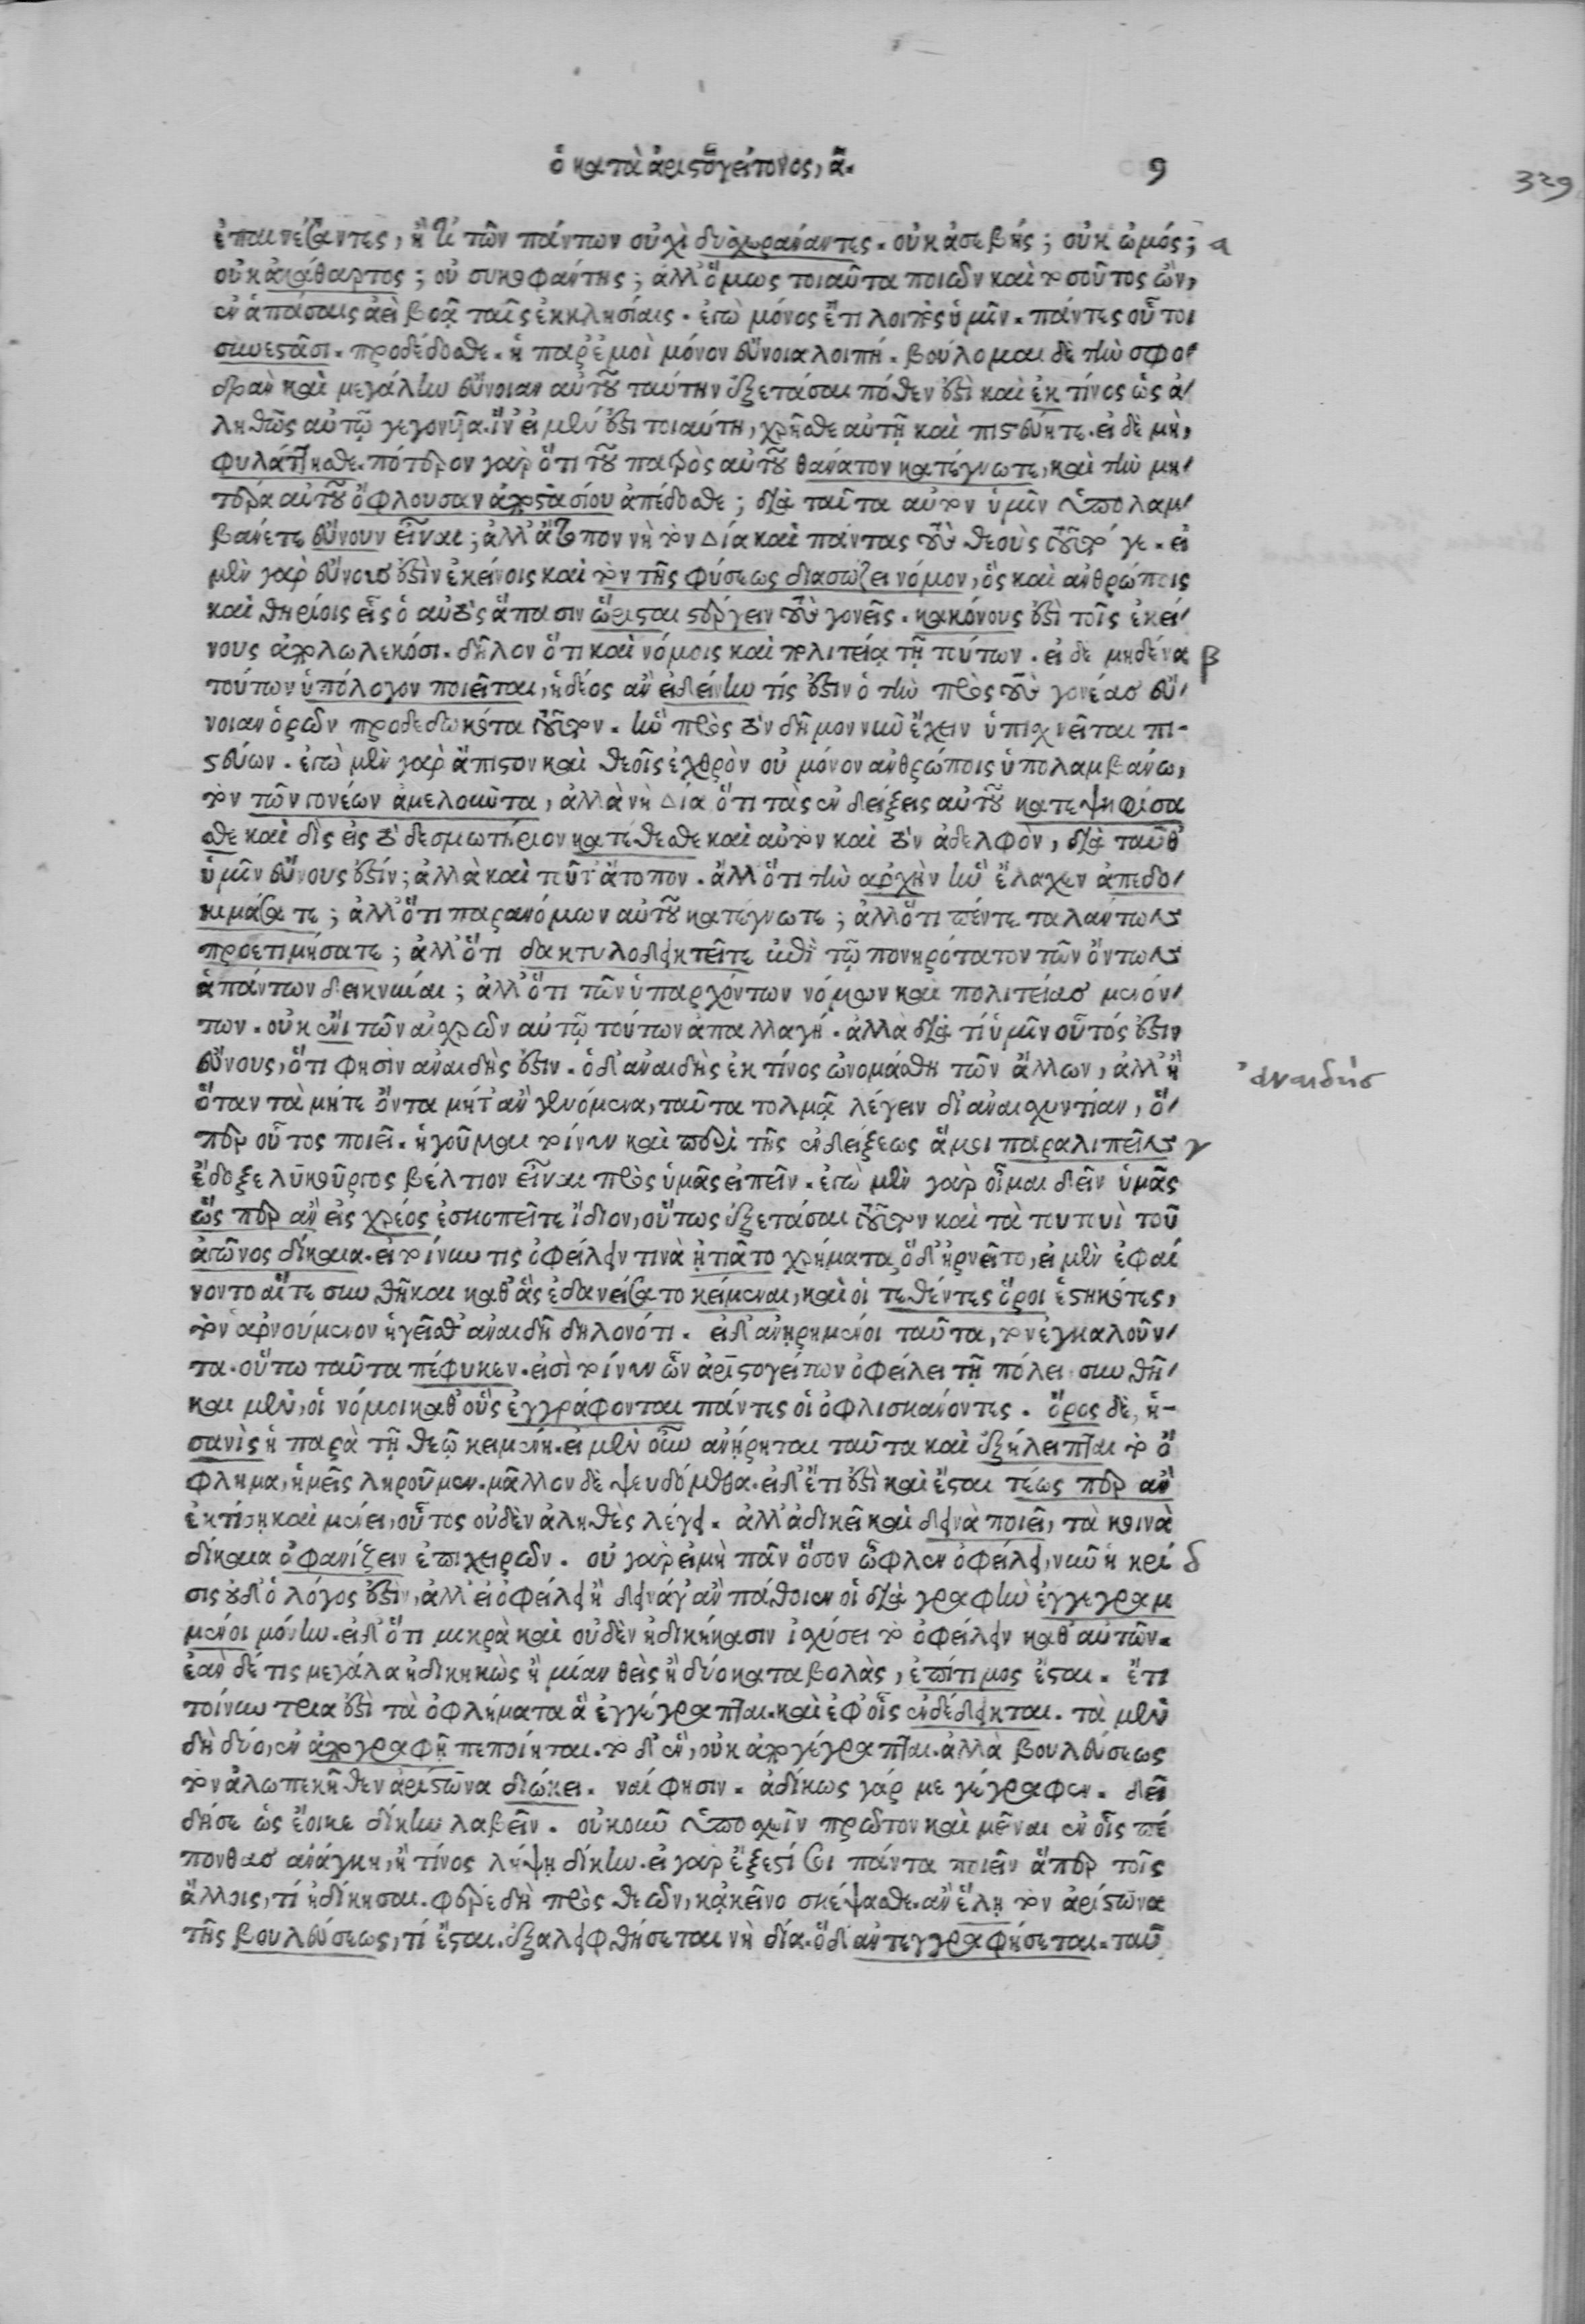 ὁ κατὰ ἀριστογείτονος, α̃. 9
329
ἐπαινέσαντες, ἤ τι τῶν πάντων οὐχὶ δυσχεραίναντες. οὐκ ἀσεβής; οὐκ ὠμός; α
οὐκ ἀκάθαρτος; οὐ συκοφάντης; ἀλλ' ὅμως τοιαῦτα ποιῶν καὶ τοσοῦτος ὢν,
ἐν ἁπάσαις ἀεὶ βοᾷ ταῖς ἐκκλησίαις. ἐγὼ μόνος ἔτι λοιπὸς ὑμῖν. πάντες οὗτοι
συνεστᾶσι. προδέδοσθε. ἡ παρ' ἐμοὶ μόνον εὔνοια λοιπή. βούλομαι δὲ τὴν σφο
δρὰν καὶ μεγάλην εὔνοιαν αὐτοῦ ταύτην ἐξετάσαι πόθεν ἐστὶ καὶ ἐκ τίνος ὡς ἀ
ληθῶς αὐτῷ γεγονῦα. ἵν' εἰ μέν ἐστι τοιαύτη, χρῆσθε αὐτῇ καὶ πιστεύητε. εἰ δὲ μὴ,
φυλάττησθε. πότερον γὰρ ὅτι τοῦ πατρὸς αὐτοῦ θάνατον κατέγνωτε, καὶ τὴν μη
τέρα αὐτοῦ ὀφλουσαν ἀποστασίου ἀπέδοσθε; διὰ ταῦτα αὐτὸν ὑμῖν ὑπολαμ
βάνετε εὔνουν εἶναι; ἀλλ' ἄτοπον νὴ τὸν Δία καὶ πάντας τοὺς θεοὺς τοῦτό γε. εἰ
μὲν γὰρ εὔνους ἐστὶν ἐκείνοις καὶ τὸν τῆς φύσεως διασώζει νόμον, ὃς καὶ ἀνθρώποις
καὶ θηρίοις εἷς ὁ αὐτὸς ἅπασιν ὥρισται στέργειν τοὺς γονεῖς. κακόνους ἐστὶ τοῖς ἐκεί
νους ἀπολωλεκόσι. δῆλον ὅτι καὶ νόμοις καὶ πολιτείᾳ τῇ τούτων. εἰ δὲ μηδένα β
τούτων ὑπόλογον ποιεῖται, ἡδέος ἂν εἰδείην τίς ἐστιν ὁ τὴν πρὸς τοὺς γονέας εὔ
νοιαν ὁρῶν προδεδωκότα τοῦτον. ἣν πρὸς τὸν δῆμον νῦν ἔχειν ὑπισχνεῖται πι-
στεύων. ἐγὼ μὲν γὰρ ἄπιστον καὶ θεοῖς ἐχθρὸν οὐ μόνον ἀνθρώποις ὑπολαμβάνω,
τὸν τῶν γονέων ἀμελοῦντα, ἀλλὰ νὴ Δία ὅτι τὰς ἐνδείξεις αὐτοῦ κατεψηφίσα
σθε καὶ δὶς εἰς τὸ δεσμωτήριον κατέθεσθε καὶ αὐτὸν καὶ τὸν ἀδελφὸν, διὰ ταῦθ'
ὑμῖν εὔνους ἐστίν; ἀλλὰ καὶ τοῦτ' ἄτοπον. ἀλλ' ὅτι τὴν ἀρχὴν ἣν ἔλαχεν ἀπεδο
κιμάσατε; ἀλλ' ὅτι παρανόμων αὐτοῦ κατέγνωτε; ἀλλ' ὅτι πέντε ταλάντων
προετιμήσατε; ἀλλ' ὅτι δακτυλοδεικτεῖτε ἐπὶ τῷ πονηρότατον τῶν ὄντων
ἁπάντων δεικνύναι; ἀλλ' ὅτι τῶν ὑπαρχόντων νόμων καὶ πολιτείας μενόν
των. οὐκ ἔνι τῶν αἰσχρῶν αὐτῷ τούτων ἀπαλλαγή. ἀλλὰ διὰ τί ὑμῖν οὗτός ἐστιν
εὔνους, ὅτι φησὶν ἀναιδής ἐστιν. ὁ δ' ἀναιδὴς ἐκ τίνος ὠνομάσθη τῶν ἄλλων, ἀλλ' ἢ
ἀναιδὴς
ὅταν τὰ μήτε ὄντα μήτ' ἂν γενόμενα, ταῦτα τολμᾷ λέγειν δι' ἀναισχυντίαν, ὅ
περ οὗτος ποιεῖ. ἡγοῦμαι τοίνυν καὶ περὶ τῆς ἐνδείξεως ἅ μοι παραλιπεῖν γ
ἔδοξε λυκοῦργος βέλτιον εἶναι πρὸς ὑμᾶς εἰπεῖν. ἐγὼ μὲν γὰρ οἶμαι δεῖν ὑμᾶς
ὥσπερ ἂν εἰς χρέος ἐσκοπεῖτε ἴδιον, οὕτως ἐξετάσαι τοῦτον καὶ τὰ τουτουὶ τοῦ
ἀγῶνος δίκαια. εἰ τοίνυν τις ὀφείλειν τινὰ ᾐτιᾶτο χρήματα, ὁ δ' ἠρνεῖτο, εἰ μὲν ἐφαί
νοντο αἵ τε συνθῆκαι καθ' ἃς ἐδανείσατο κείμεναι, καὶ οἱ τεθέντες ὅροι ἑστηκότες,
τὸν ἀρνούμενον ἡγεῖσθ' ἀναιδῆ δηλονότι. εἰ δ' ἀνῃρημένοι ταῦτα, τὸν ἐγκαλοῦν
τα. οὕτω ταῦτα πέφυκεν. εἰσὶ τοίνυν ὧν ἀριστογείτων ὀφείλει τῇ πόλει συνθῆ
και μὲν, οἱ νόμοι καθ' οὓς ἐγγράφονται πάντες οἱ ὀφλισκάνοντες. ὅρος δὲ, ἡ-
σανὶς ἡ παρὰ τῇ θεῷ κειμένη. εἰ μὲν οὖν ἀνῄρηται ταῦτα καὶ ἐξήλειπται τὸ ὄ
φλημα, ἡμεῖς ληροῦμεν. μᾶλλον δὲ ψευδόμεθα. εἰ δ' ἔτι ἐστὶ καὶ ἔσται τέως περ ἂν
ἐκτίσῃ καὶ μένει, οὗτος οὐδὲν ἀληθὲς λέγει. ἀλλ' ἀδικεῖ καὶ δεινὰ ποιεῖ, τὰ κοινὰ
δίκαια ἀφανίζειν ἐπιχειρῶν. οὐ γὰρ εἰ μὴ πᾶν ὅσον ὦφλεν ὀφείλει, νῦν ἡ κρί δ
σις οὐδ' ὁ λόγος ἐστὶν, ἀλλ' εἰ ὀφείλει ἢ δεινά γ' ἂν πάθοιεν οἱ διὰ γραφὴν ἐγγεγραμ
μένοι μόνην. εἰ δ' ὅτι μικρὰ καὶ οὐδὲν ἠδικήκασιν ἰσχύσει τὸ ὀφείλειν καθ' αὑτῶν.
ἐὰν δέ τις μεγάλα ἠδικηκὼς ἢ μίαν θεὶς ἢ δύο καταβολὰς, ἐπίτιμος ἔσται. ἔτι
τοίνυν τρία ἐστὶ τὰ ὀφλήματα ἃ ἐγγέγραπται. καὶ ἐφ' οἷς ἐνδέδεικται. τὰ μὲν
δὴ δύο, ἐν ἀπογραφῇ πεποίηται. τὸ δ' ἓν, οὐκ ἀπογέγραπται. ἀλλὰ βουλεύσεως
τὸν ἀλωπεκῆθεν ἀρίστωνα διώκει. ναί φησιν. ἀδίκως γάρ με γέγραφεν. δεῖ
δή σε ὡς ἔοικε δίκην λαβεῖν. οὐκοῦν ὑποσχεῖν πρῶτον καὶ μεῖναι ἐν οἷς πέ
πονθας ἀνάγκη, ἢ τίνος λήψῃ δίκην. εἰ γὰρ ἔξεστί σοι πάντα ποιεῖν ἅπερ τοῖς
ἄλλοις, τί ἠδίκησαι. φέρε δὴ πρὸς θεῶν, κἀκεῖνο σκέψασθε. ἂν ἕλῃ τὸν ἀρίστωνα
τῆς βουλεύσεως, τί ἔσται. ἐξαλειφθήσεται νὴ δία. ὁ δ' ἀντεγγραφήσεται. ταῦ